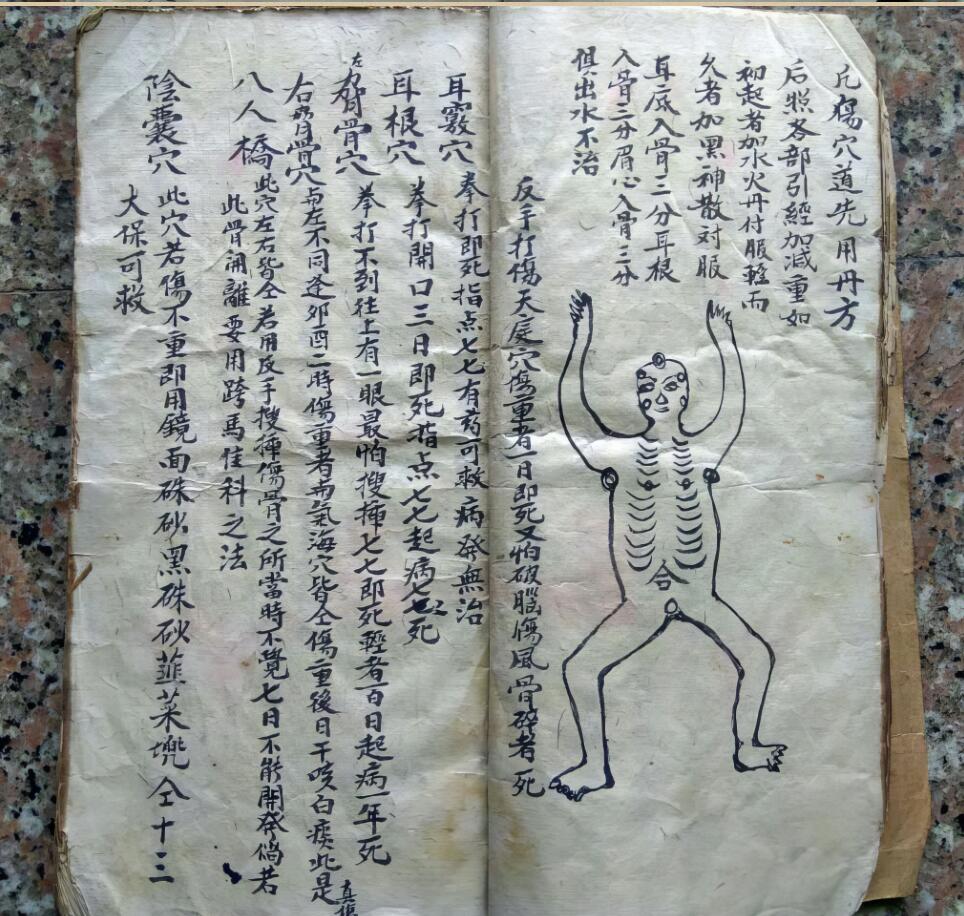 凡傷穴道先用丹方
后照各部引經加減重如
初起者加水火丹付服輕而
久者加黑神散对服
耳底入骨三分耳根
入骨三分眉心入骨三分
俱出水不治
合
反手打傷天庭穴傷重者一日即死又怕破腦傷風骨碎者死
耳竅穴 拳打即死指点七七有葯可救病發無治
耳根穴 拳打開口三日即死指点七七起病七七死
左脅骨穴 拳打不到往上有一眼最怕搜插七七即死輕者一百日起病一年死
右脅骨穴 与左不同逢夘酉二時傷重者与氣海穴皆仝傷重後日干咳白痰此是真傷
八人橋 此穴左右皆仝若用反手搜插傷骨之所當時不覺七日不能開發倘若
此骨開離要用跨馬佳科之法
陰囊穴 此穴若傷不重即用鏡面硃砂黑硃砂韮菜兠仝十三
大保可救